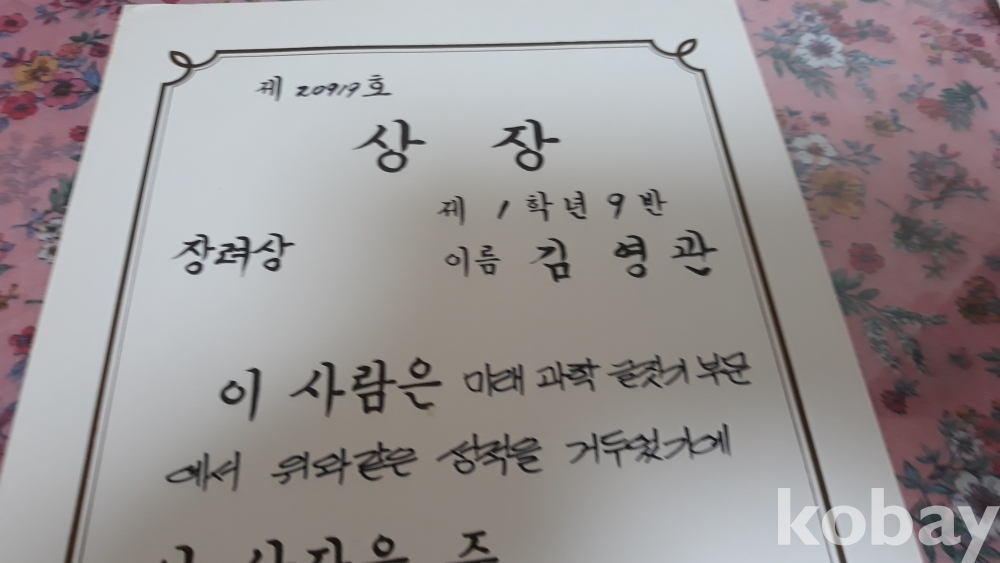 제 20919호
상 장
제 1 학년 9 반
장려상
이름 김 영 관
이 사람은 미래 과학 글짓기 부문
에서 위와같은 성적을 거두었기에
kobay